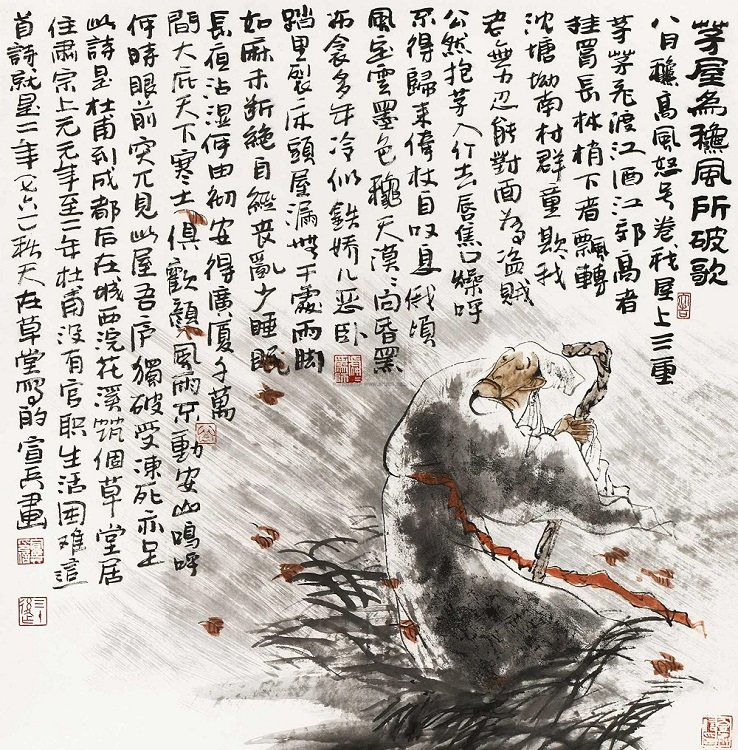 茅屋為穐風所破歌
八月穐高風怒号卷我屋上三重
茅茅飛渡江洒江郊高者
挂罥長林梢下者飄轉
沈塘坳南村群童欺我
老無力忍能對面為盗賊
公然抱茅入竹去唇焦口燥呼
不得歸来倚杖自叹息俄頃
風定雲墨色穐天漠〻向昏黑
布衾多年冷似鉄嬌儿恶卧
踏里裂床頭屋漏無干處雨脚
如麻未断絶自經喪亂少睡眠
長夜沾湿何由彻安得廣厦千萬
間大庇天下寒士俱歡顔風雨不動安山鳴呼
何時眼前突兀見此屋吾庐獨破受凍死亦足
此詩是杜甫到成都后在城西浣花溪筑個草堂居
住肅宗上元元年至二年杜甫没有官职生活困难這
首詩就是二年(七六一)秋天在草堂寫的宣兵畫